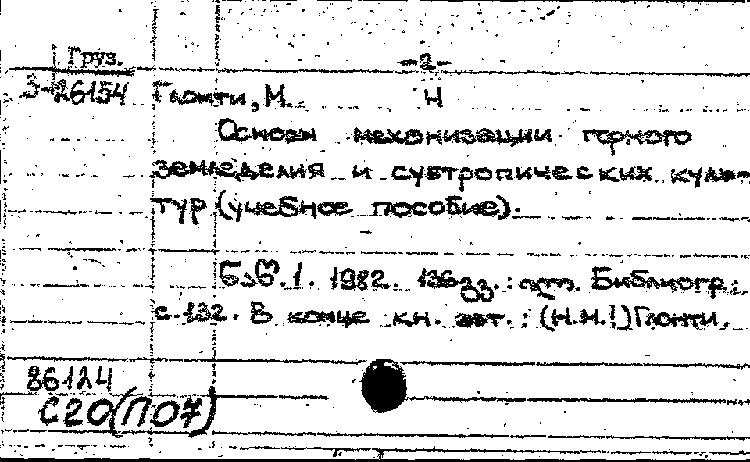 Груз. -2-
3-26154 Глонти, М. Н
Основы механизации горного
земледелия и субтропических куль-
тур (учебное пособие).
ნაწ. 1. 1982. 136 გვ. : ил. Библиогр.:
с. 132. В конце кн. авт.: (Н.М.!) Глонти.
86124
С20(П07)